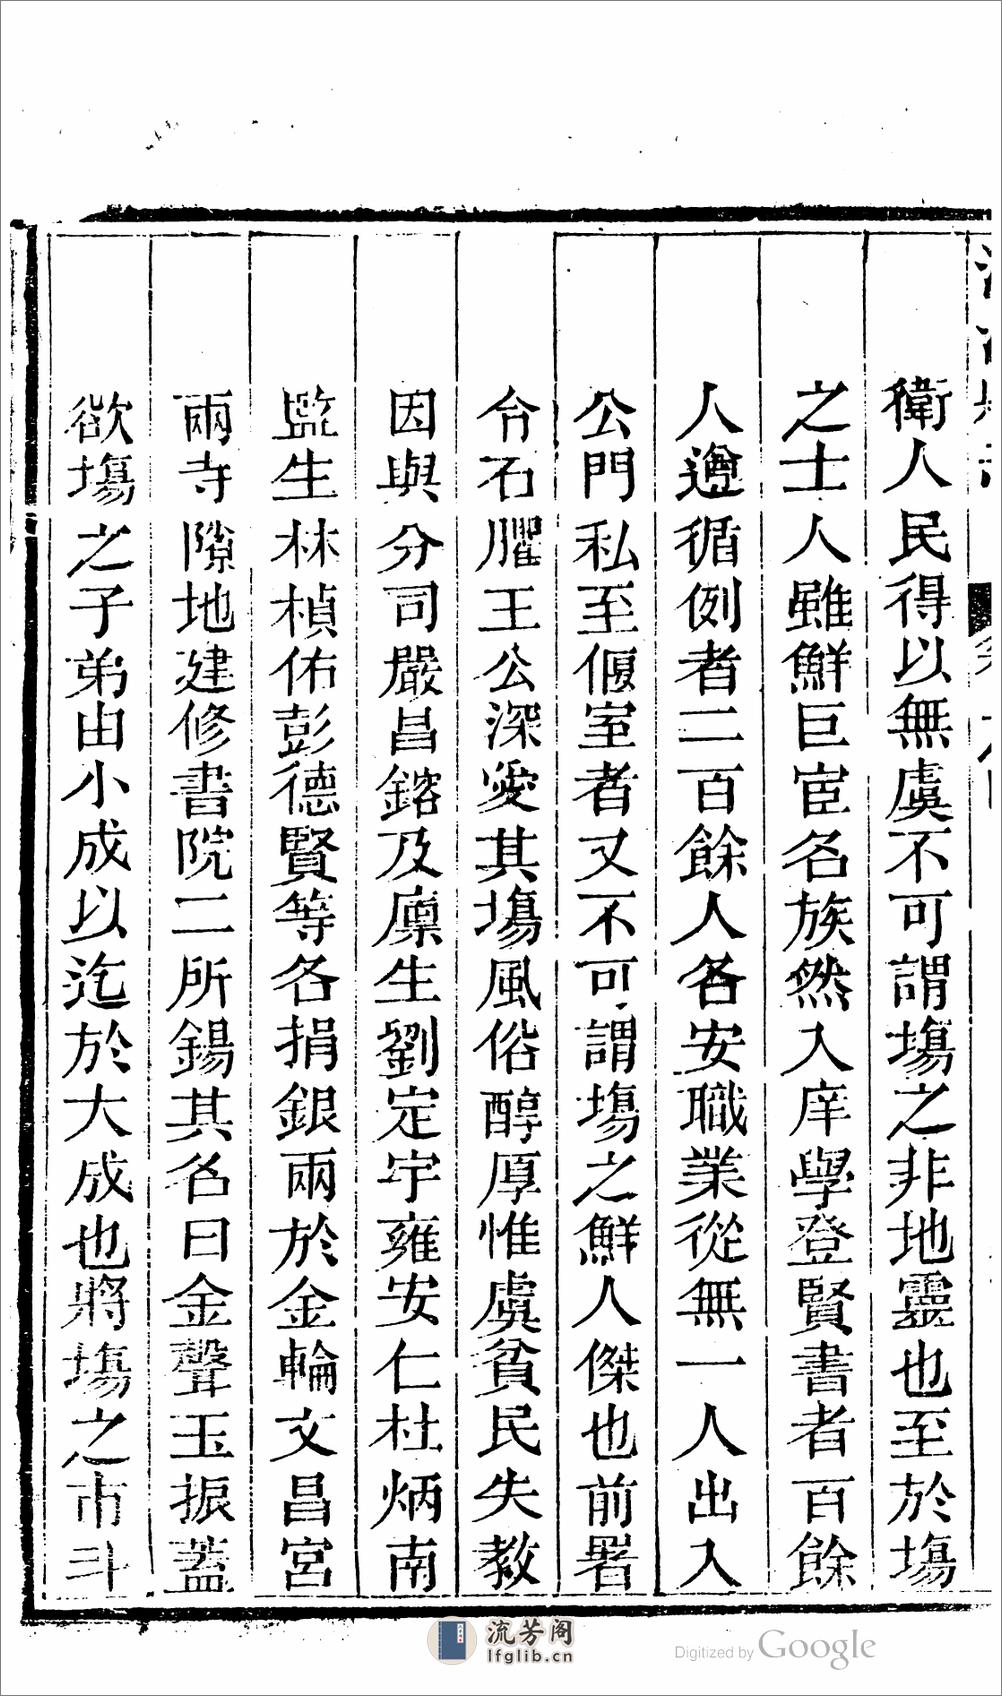 衛人民得以無虞不可謂塲之非地靈也至於塲
之士人雖鮮巨宦名族然入庠學登賢書者百餘
人遵循例者二百餘人各安職業從無一人出入
公門私至偃室者又不可謂塲之鮮人傑也前署
令石臞王公深愛其塲風俗醇厚惟虞貧民失教
因與分司嚴昌鎔及廩生劉定宇雍安仁杜炳南
監生林楨佑彭德賢等各捐銀兩於金輪文昌宮
兩寺隙地建修書院二所錫其名曰金聲玉振蓋
欲塲之子弟由小成以迄於大成也將塲之市斗
流芳阁
lfglib.cn
Digitized by Google